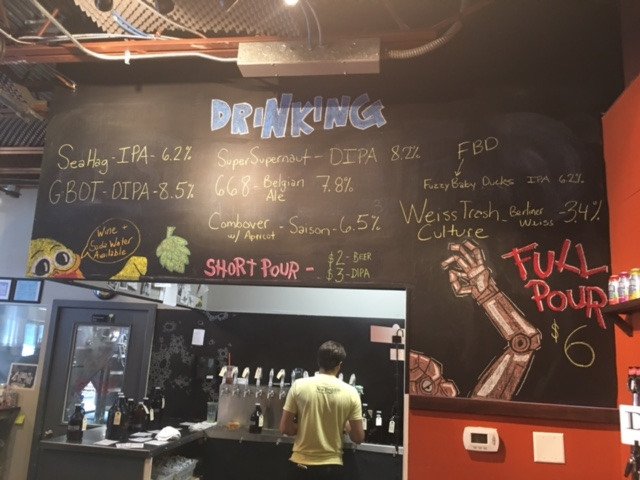 DRINKING
SeaHag - IPA - 6.2%
GBOT - DIPA - 8.5%
Wine +
Soda Water
Available
SuperSupernaut - DIPA 8.2%
668 - Belgian
Ale
7.8%
Combover - Saison - 6.5%
w/ Apricot
SHORT POUR -
$2 - BEER
$3 - DIPA
FBD
Fuzzy Baby Ducks IPA 6.2%
Weiss Trash
Culture
- Berliner
Weiss
- 3.4%
FULL
POUR
$6